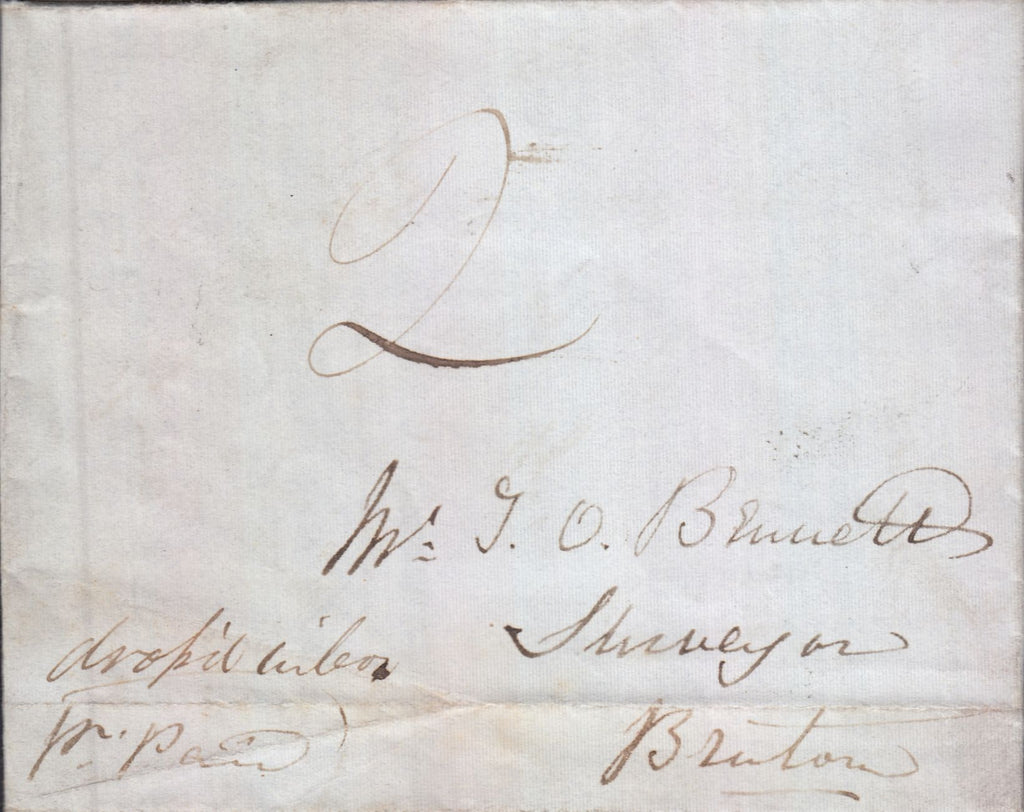 2
Mr. J. O. Bennett
Surveyor
Bruton
drop'd in box
Pr. Paid